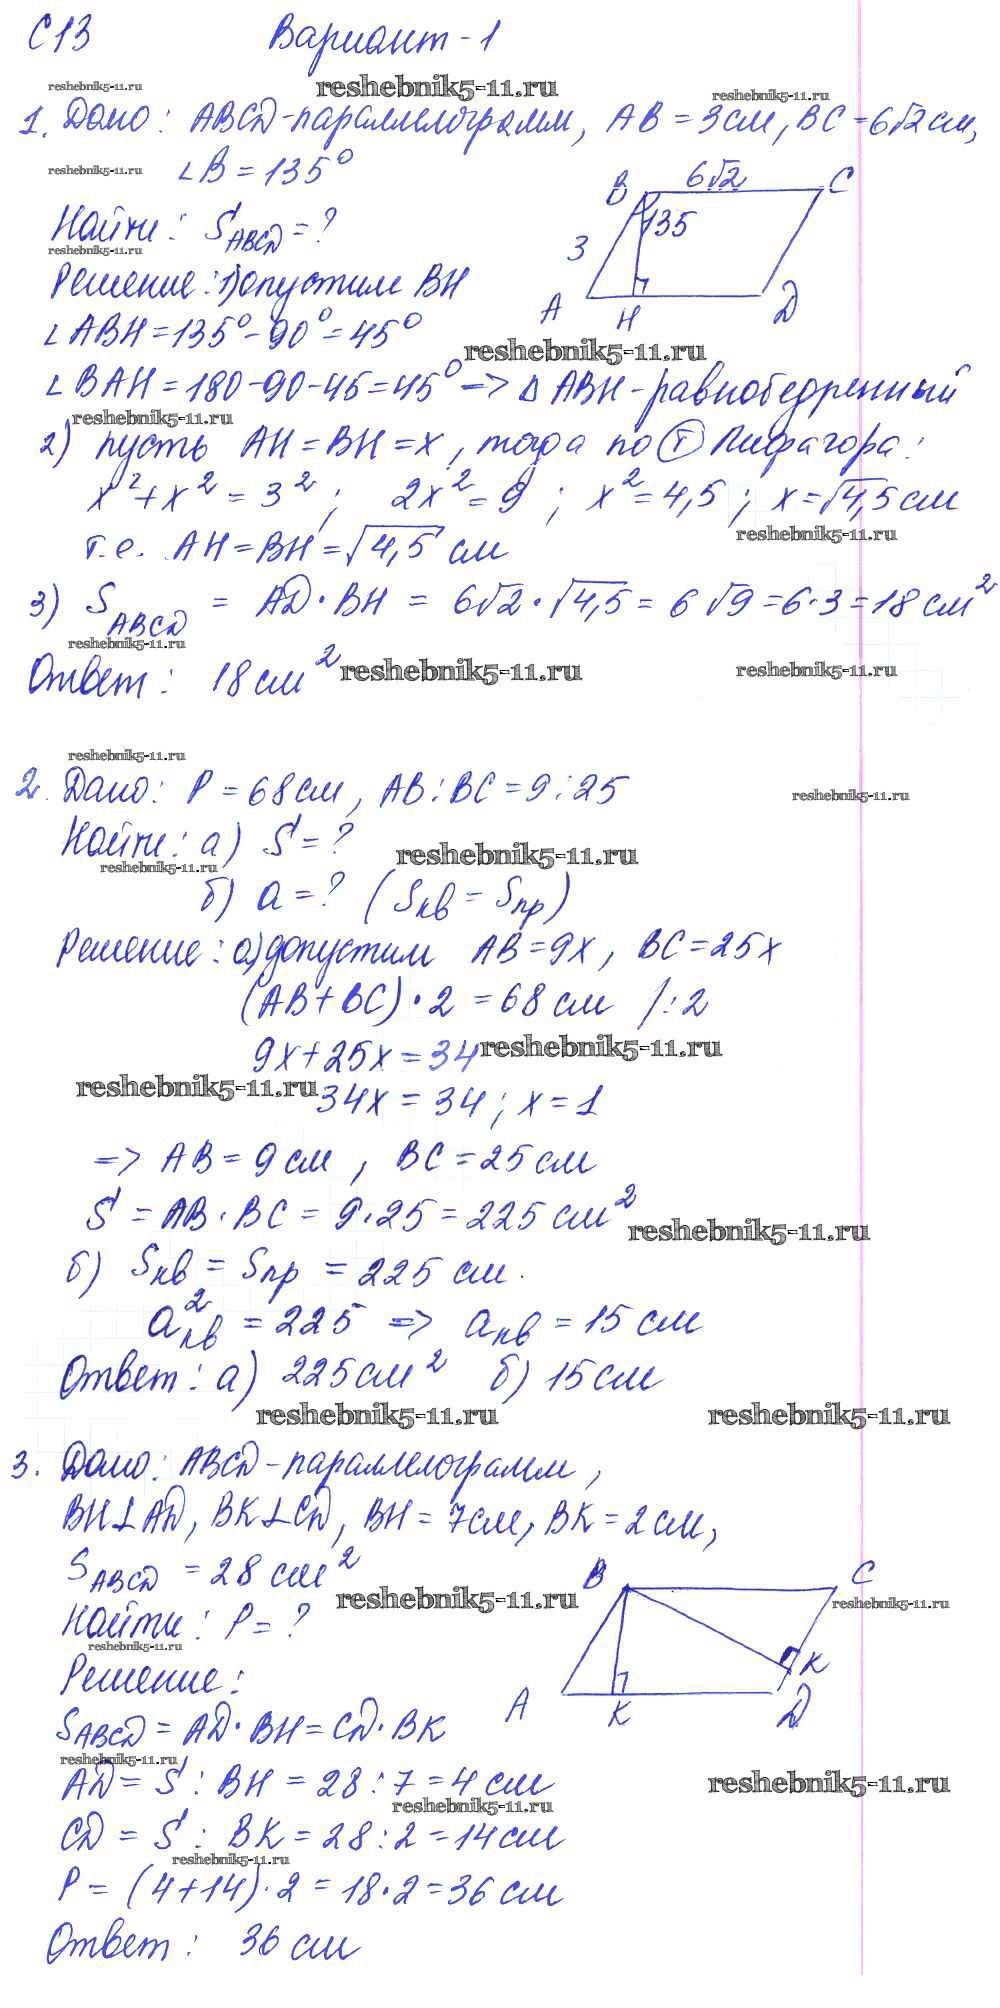 С13 Вариант-1
reshebnik5-11.ru reshebnik5-11.ru reshebnik5-11.ru
1. Дано: ABCD-параллелограмм, AB = 3см, BC = 6√2 см,
reshebnik5-11.ru ∠B = 135°
Найти: S ABCD = ?
reshebnik5-11.ru
Решение: 1) опустим BH
∠ABH = 135° - 90° = 45°
B 6√2 C
135
3
A H D
reshebnik5-11.ru
∠BAH = 180-90-45 = 45° => Δ ABH - равнобедренный
reshebnik5-11.ru
2) пусть AH = BH = x, тогда по Т Пифагора:
x² + x² = 3²; 2x² = 9; x² = 4,5; x = √4,5 см
reshebnik5-11.ru
т.е. AH = BH = √4,5 см
3) S ABCD = AD · BH = 6√2 · √4,5 = 6√9 = 6·3 = 18 см²
reshebnik5-11.ru
Ответ: 18 см²
reshebnik5-11.ru reshebnik5-11.ru
reshebnik5-11.ru
2. Дано: P = 68 см, AB : BC = 9 : 25
reshebnik5-11.ru
Найти: а) S = ?
reshebnik5-11.ru reshebnik5-11.ru
б) a = ? (Sкв = Sпр)
Решение: а) допустим AB = 9x, BC = 25x
(AB + BC) · 2 = 68 см /:2
9x + 25x = 34
reshebnik5-11.ru
reshebnik5-11.ru
34x = 34; x = 1
=> AB = 9 см, BC = 25 см
S = AB · BC = 9·25 = 225 см²
reshebnik5-11.ru
б) Sкв = Sпр = 225 см.
a²кв = 225 => aкв = 15 см
Ответ: а) 225 см² б) 15 см
reshebnik5-11.ru reshebnik5-11.ru
3. Дано: ABCD - параллелограмм,
BH⊥AD, BK⊥CD, BH = 7см, BK = 2см,
S ABCD = 28 см²
reshebnik5-11.ru
Найти: P = ?
reshebnik5-11.ru
B C
reshebnik5-11.ru
K
A K D
Решение:
S ABCD = AD · BH = CD · BK
reshebnik5-11.ru
AD = S : BH = 28 : 7 = 4 см
reshebnik5-11.ru
reshebnik5-11.ru
CD = S : BK = 28 : 2 = 14 см
reshebnik5-11.ru
P = (4+14)·2 = 18·2 = 36 см
Ответ: 36 см